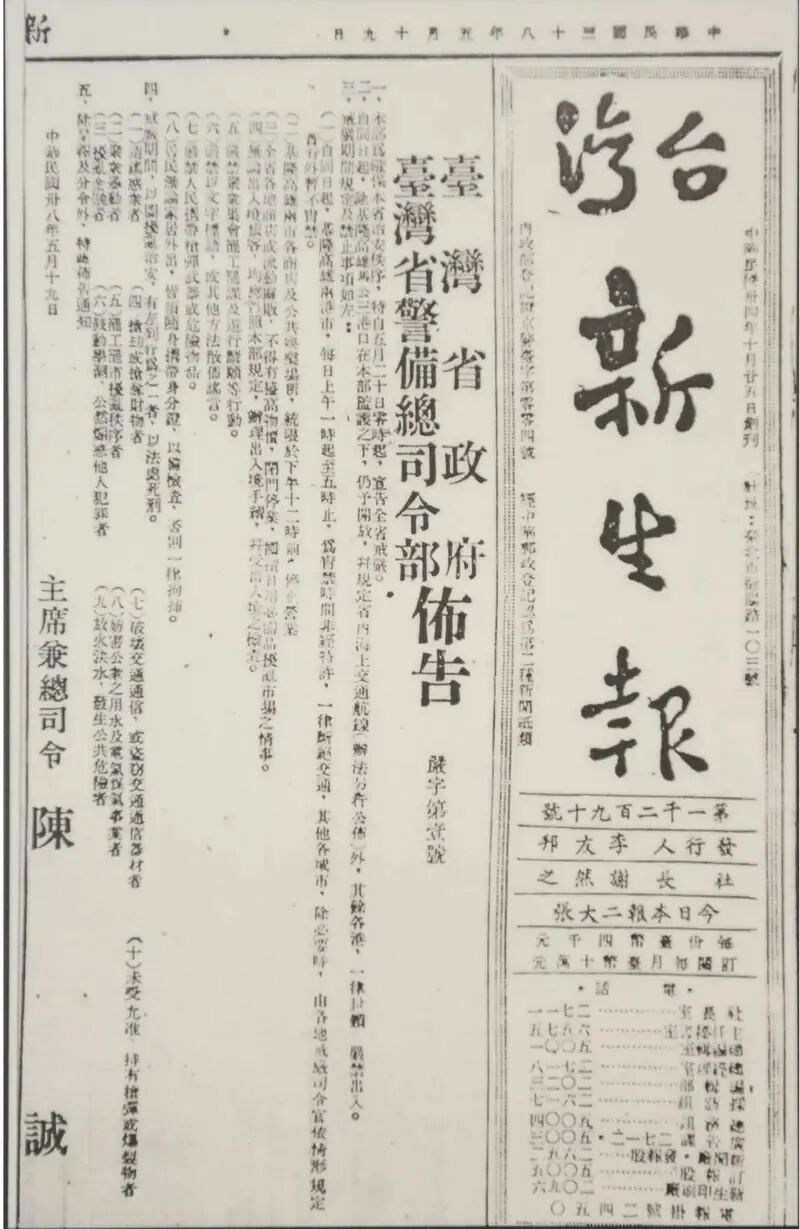 中華民國三十八年五月十九日
新
台灣新生報
中華民國卅四年十月廿五日創刊
內政部登記證京警臺字第零零四號
經中華郵政登記認爲第二種新聞紙類
第一千二百九十號
發行人 李友邦
社長 謝然之
今日本報二大張
每份臺幣四千元
訂閱每月臺幣十萬元
電話
臺灣省政府
臺灣省警備總司令部
佈告
嚴字第壹號
一、本部爲確保本省治安秩序，特自五月二十日零時起，宣告全省戒嚴。
二、自同日起，除基隆高雄馬公三港口在本部監護之下，仍予開放，幷規定省內海上交通航線（辦法另行公佈）外，其餘各港，一律封鎖，嚴禁出入。
三、戒嚴期間規定及禁止事項如左：
（一）自同日起，基隆高雄兩港市，每日上午一時起至五時止，爲宵禁時間，非經特許，一律斷絕交通，其他各城市，除必要時，由各地戒嚴司令官依情形規定
實行外，暫不宵禁。
（二）基隆高雄兩市各商店及公共娛樂場所，統限於下午十二時前，停止營業
（三）全省各地商店或流動攤販，不得有擡高物價，閉門停業，囤積日用必需品擾亂市場之情事。
（四）無論出入境旅客，均應依照本部規定，辦理出入境手續，幷受出入境之檢查。
（五）嚴禁聚衆集會罷工罷課及遊行請願等行動。
（六）嚴禁以文字標語，或其他方法散佈謠言。
（七）嚴禁人民携帶槍彈武器或危險物品。
（八）居民無論家居外出，皆須隨身携帶身分證，以備檢查，否則一律拘捕。
四、戒嚴期間，以圖擾亂治安，有左列行爲之一者，以法處死刑。
（一）造謠惑衆者
（四）搶刼或搶奪財物者
（七）破壞交通通信，或盜竊交通通信器材者
（十）未受允准，持有槍彈或爆裂物者
（二）聚衆暴動者
（五）罷工罷市擾亂秩序者
（八）妨害公衆之用水及電氣煤氣事業者
（三）擾亂金融者
（六）鼓動學潮，公然煽惑他人犯罪者
（九）放火決水，發生公共危險者
五、除呈報及分令外，特此佈告通知
中華民國卅八年五月十九日
主席兼總司令 陳誠